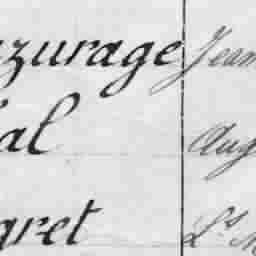 zurage Jean
al Aug
gret Ls M